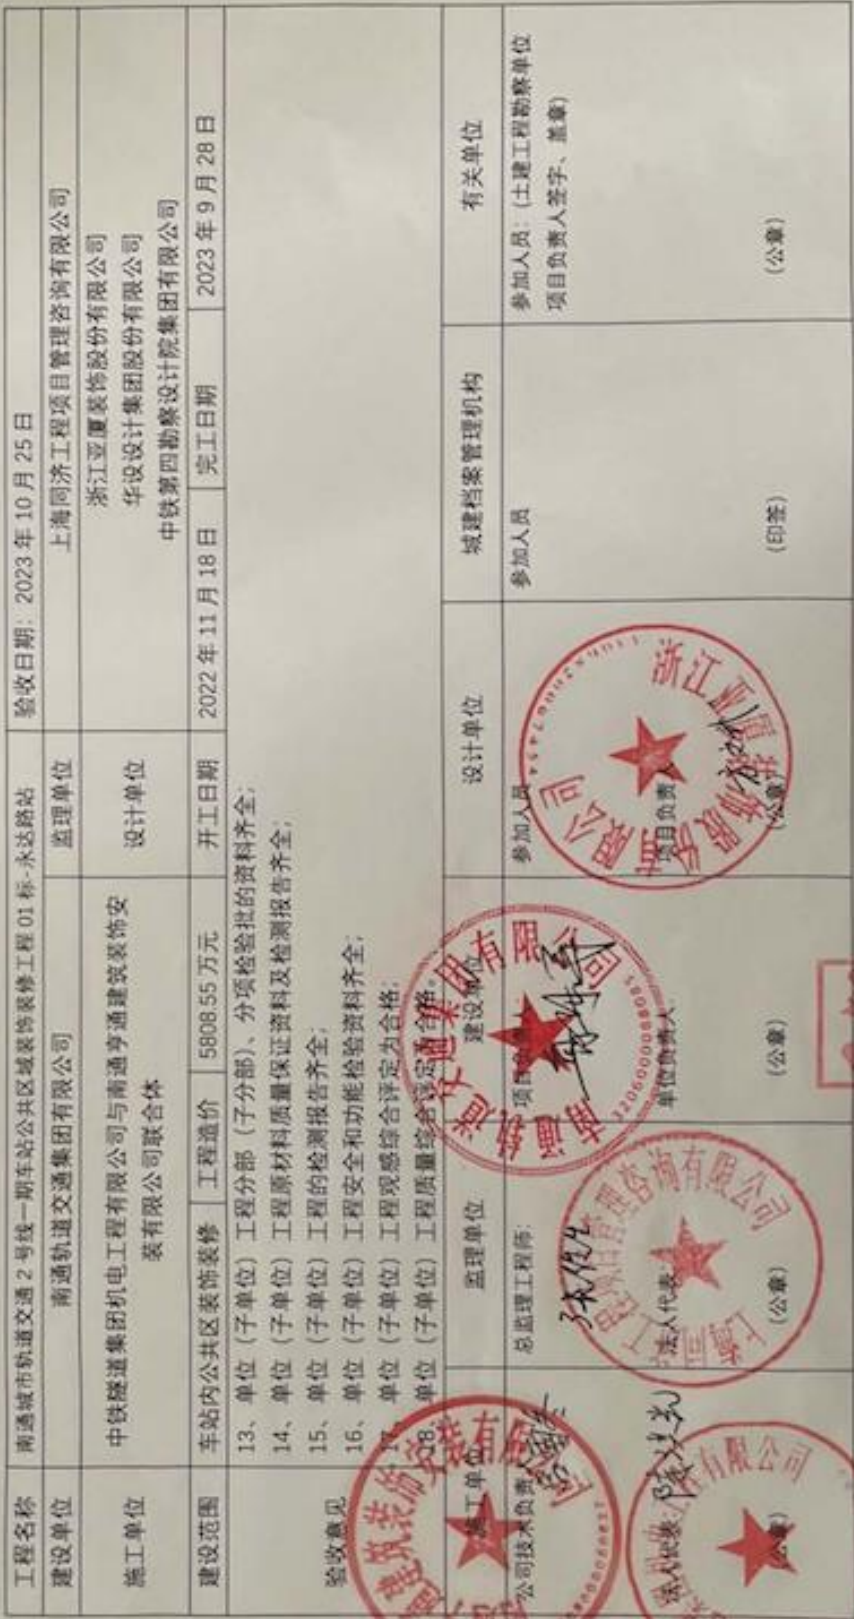 工程名称 南通城市轨道交通 2 号线一期车站公共区域装饰装修工程 01 标-永达路站 验收日期：2023 年 10 月 25 日
建设单位 南通轨道交通集团有限公司 监理单位 上海同济工程项目管理咨询有限公司
施工单位 中铁隧道集团机电工程有限公司与南通亨通建筑装饰安
装有限公司联合体
设计单位 浙江亚厦装饰股份有限公司
华设设计集团股份有限公司
中铁第四勘察设计院集团有限公司
建设范围 车站内公共区装饰装修 工程造价 5808.55 万元 开工日期 2022 年 11 月 18 日 完工日期 2023 年 9 月 28 日
验收意见
13、单位（子单位）工程分部（子分部）、分项检验批的资料齐全；
14、单位（子单位）工程原材料质量保证资料及检测报告齐全；
15、单位（子单位）工程的检测报告齐全；
16、单位（子单位）工程安全和功能检验资料齐全；
17、单位（子单位）工程观感综合评定为合格；
18、单位（子单位）工程质量综合评定为合格。
施工单位 监理单位 建设单位 设计单位 城建档案管理机构 有关单位
公司技术负责
法人代表
（公章）
总监理工程师：
法人代表
（公章）
项目负责
单位负责人：
（公章）
参加人员
项目负责人
（公章）
参加人员
（印签）
参加人员：（土建工程勘察单位
项目负责人签字、盖章）
（公章）
建筑装饰安装有限公
有限公司
管理咨询有限公司
南通轨道交通集团有限公司
3206000088085
浙江亚厦装饰股份有限公司